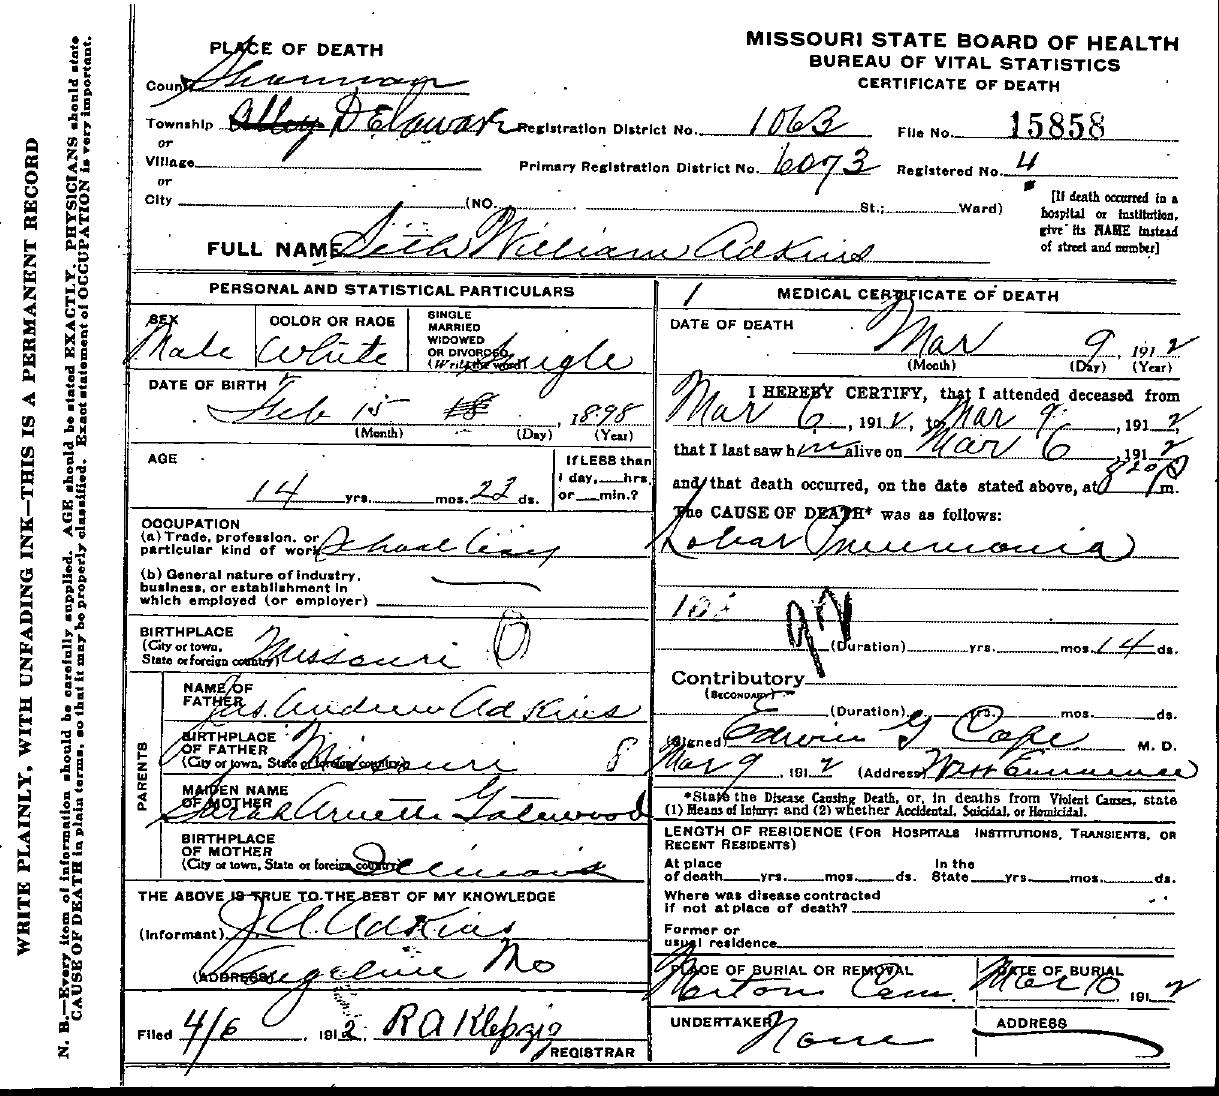 MISSOURI STATE BOARD OF HEALTH
BUREAU OF VITAL STATISTICS
CERTIFICATE OF DEATH
PLACE OF DEATH
County Shannon
Township Alley DElawar Registration District No. 1063 File No. 15858
or
Village Primary Registration District No. 6073 Registered No. 4
or
City (NO. St.; Ward)
[If death occurred in a
hospital or institution,
give its NAME instead
of street and number]
FULL NAME Seth William Adkins
PERSONAL AND STATISTICAL PARTICULARS
SEX
Male
COLOR OR RACE
White
SINGLE
MARRIED
WIDOWED
OR DIVORCED
(Write the word) Single
DATE OF BIRTH
Feb 15, 1898
(Month) (Day) (Year)
AGE
14 yrs. mos. 22 ds.
If LESS than
1 day, hrs.
or min.?
OCCUPATION
(a) Trade, profession, or
particular kind of work School Boy
(b) General nature of industry,
business, or establishment in
which employed (or employer)
BIRTHPLACE
(City or town,
State or foreign country) Missouri
PARENTS
NAME OF
FATHER Jas. Andrew Adkins
BIRTHPLACE
OF FATHER
(City or town, State or foreign country) Missouri 8
MAIDEN NAME
OF MOTHER Sarah Gatewood
BIRTHPLACE
OF MOTHER
(City or town, State or foreign country) Illinois
THE ABOVE IS TRUE TO THE BEST OF MY KNOWLEDGE
(Informant) J. A. Adkins
(ADDRESS) Angeline Mo
Filed 4/6, 1912. R A Klepzig
REGISTRAR
1 MEDICAL CERTIFICATE OF DEATH
DATE OF DEATH
Mar 9, 1912
(Month) (Day) (Year)
I HEREBY CERTIFY, that I attended deceased from
Mar 6, 1912, to Mar 9, 1912,
that I last saw him alive on Mar 6, 1912
and that death occurred, on the date stated above, at 820 P m.
The CAUSE OF DEATH* was as follows:
Lobar Pneumonia
92
(Duration) yrs. mos. 14 ds.
Contributory
(SECONDARY)
(Duration) yrs. mos. ds.
(Signed) Edwin G Cope M. D.
Mar 9, 1912 (Address) West Eminence
*State the Disease Causing Death, or, in deaths from Violent Causes, state
(1) Means of Injury; and (2) whether Accidental, Suicidal, or Homicidal.
LENGTH OF RESIDENCE (FOR HOSPITALS INSTITUTIONS, TRANSIENTS, OR
RECENT RESIDENTS)
At place In the
of death yrs. mos. ds. State yrs. mos. ds.
Where was disease contracted
if not at place of death?
Former or
usual residence
PLACE OF BURIAL OR REMOVAL
Cem.
DATE OF BURIAL
Mar 10 1912
UNDERTAKER
None
ADDRESS
WRITE PLAINLY, WITH UNFADING INK—THIS IS A PERMANENT RECORD
N. B.—Every item of information should be carefully supplied. AGE should be stated EXACTLY. PHYSICIANS should state
CAUSE OF DEATH in plain terms, so that it may be properly classified. Exact statement of OCCUPATION is very important.